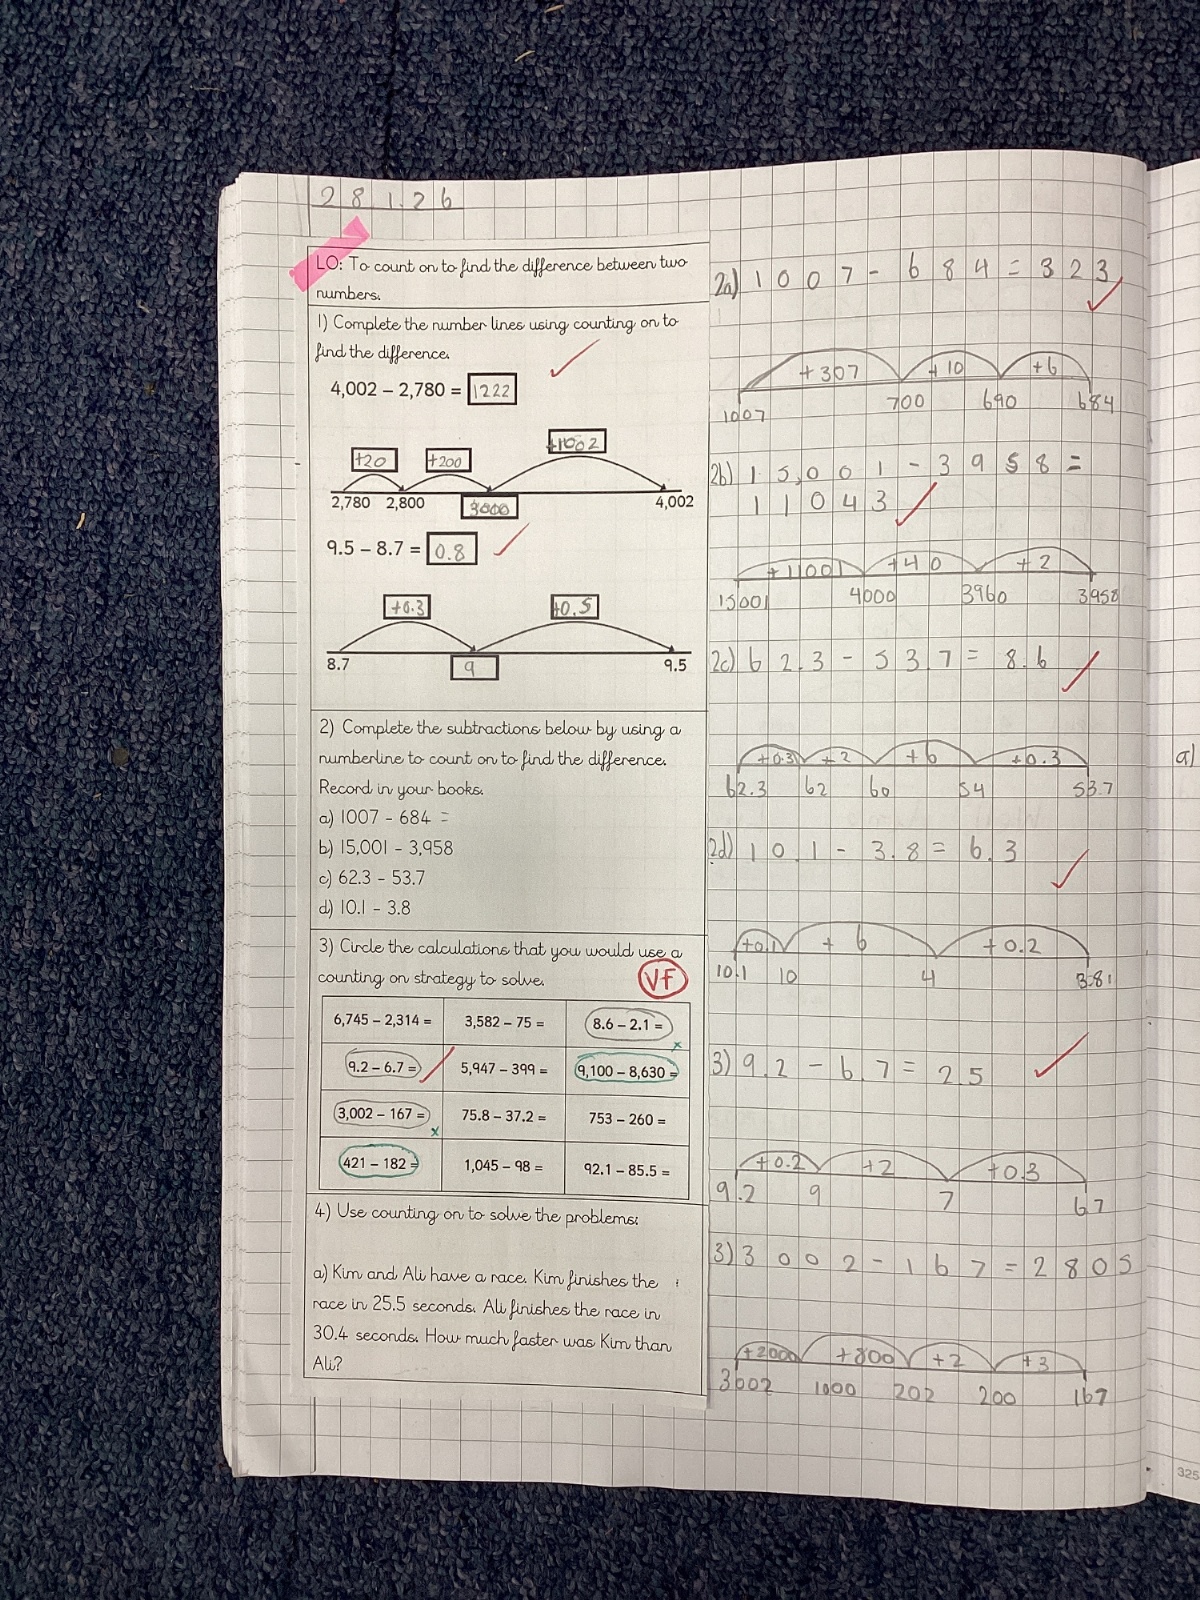 28.1.26
LO: To count on to find the difference between two
numbers.
1) Complete the number lines using counting on to
find the difference.
4,002 – 2,780 = 1222
+20 +200 +1002
2,780 2,800 3000 4,002
9.5 – 8.7 = 0.8
+0.3 +0.5
8.7 9 9.5
2) Complete the subtractions below by using a
numberline to count on to find the difference.
Record in your books.
a) 1007 - 684 =
b) 15,001 - 3,958
c) 62.3 - 53.7
d) 10.1 - 3.8
3) Circle the calculations that you would use a
counting on strategy to solve.
VF
6,745 – 2,314 = 3,582 – 75 = 8.6 – 2.1 = x
9.2 – 6.7 = 5,947 – 399 = 9,100 – 8,630 =
3,002 – 167 = x 75.8 – 37.2 = 753 – 260 =
421 – 182 = 1,045 – 98 = 92.1 – 85.5 =
4) Use counting on to solve the problems:
a) Kim and Ali have a race. Kim finishes the
race in 25.5 seconds. Ali finishes the race in
30.4 seconds. How much faster was Kim than
Ali?
2a) 1007 - 684 = 323
+307 +10 +6
1007 700 690 684
2b) 15,001 - 3958 =
11043
+11001 +40 +2
15001 4000 3960 3958
2c) 62.3 - 53.7 = 8.6
+0.3 +2 +6 +0.3
62.3 62 60 54 53.7
2d) 10.1 - 3.8 = 6.3
+0.1 +6 +0.2
10.1 10 4
3) 9.2 - 6.7 = 2.5
+0.2 +2 +0.3
9.2 9 7 6.7
3) 3002 - 167 = 2805
+2000 +800 +2 +3
3002 1000 202 200 167
a)
325